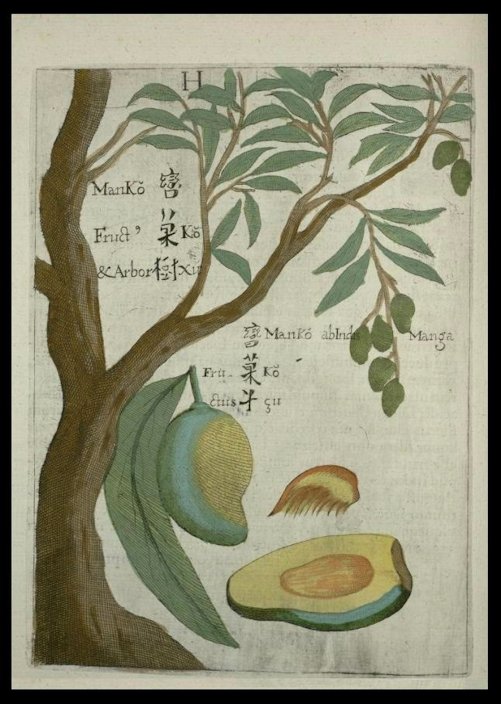 H
ManKŏ
Fruct⁹ 菓 Kŏ
&Arbor 樹 Xu
Mankŏ abIndis Manga
Fru- 菓 Kŏ
ctus çu